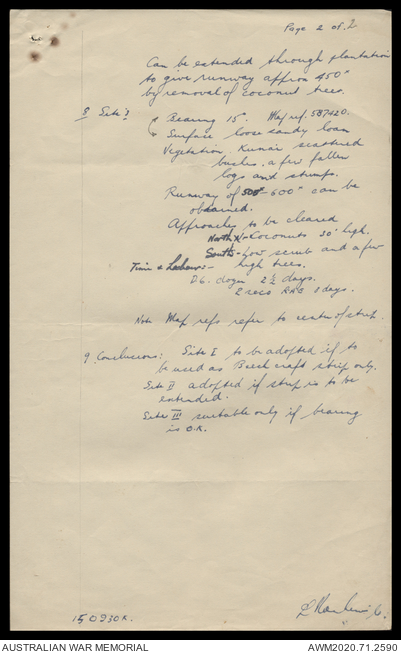 Page 2 of 2
Can be extended through plantation
to give runway approx 450"
by removal of coconut trees.
8 Site 3 Bearing 15°. Map ref. 587420.
Surface loose sandy loam
Vegetation Kunai scattered
bushes, a few fallen
logs and stumps.
Runway of 500"-600" can be
obtained.
Approaches to be cleared
North - Coconuts 30' high.
South - Low scrub and a few
high trees.
Time & Labour:-
D6. dozer 2½ days.
2 recs 2 days.
Note Map refs refer to centre of strip.
9 Conclusions: Site I to be adopted if to
be used as Beechcraft strip only.
Site II adopted if strip is to be
extended.
Site III suitable only if bearing
is O.K.
150930K.
AUSTRALIAN WAR MEMORIAL
AWM2020.71.2590